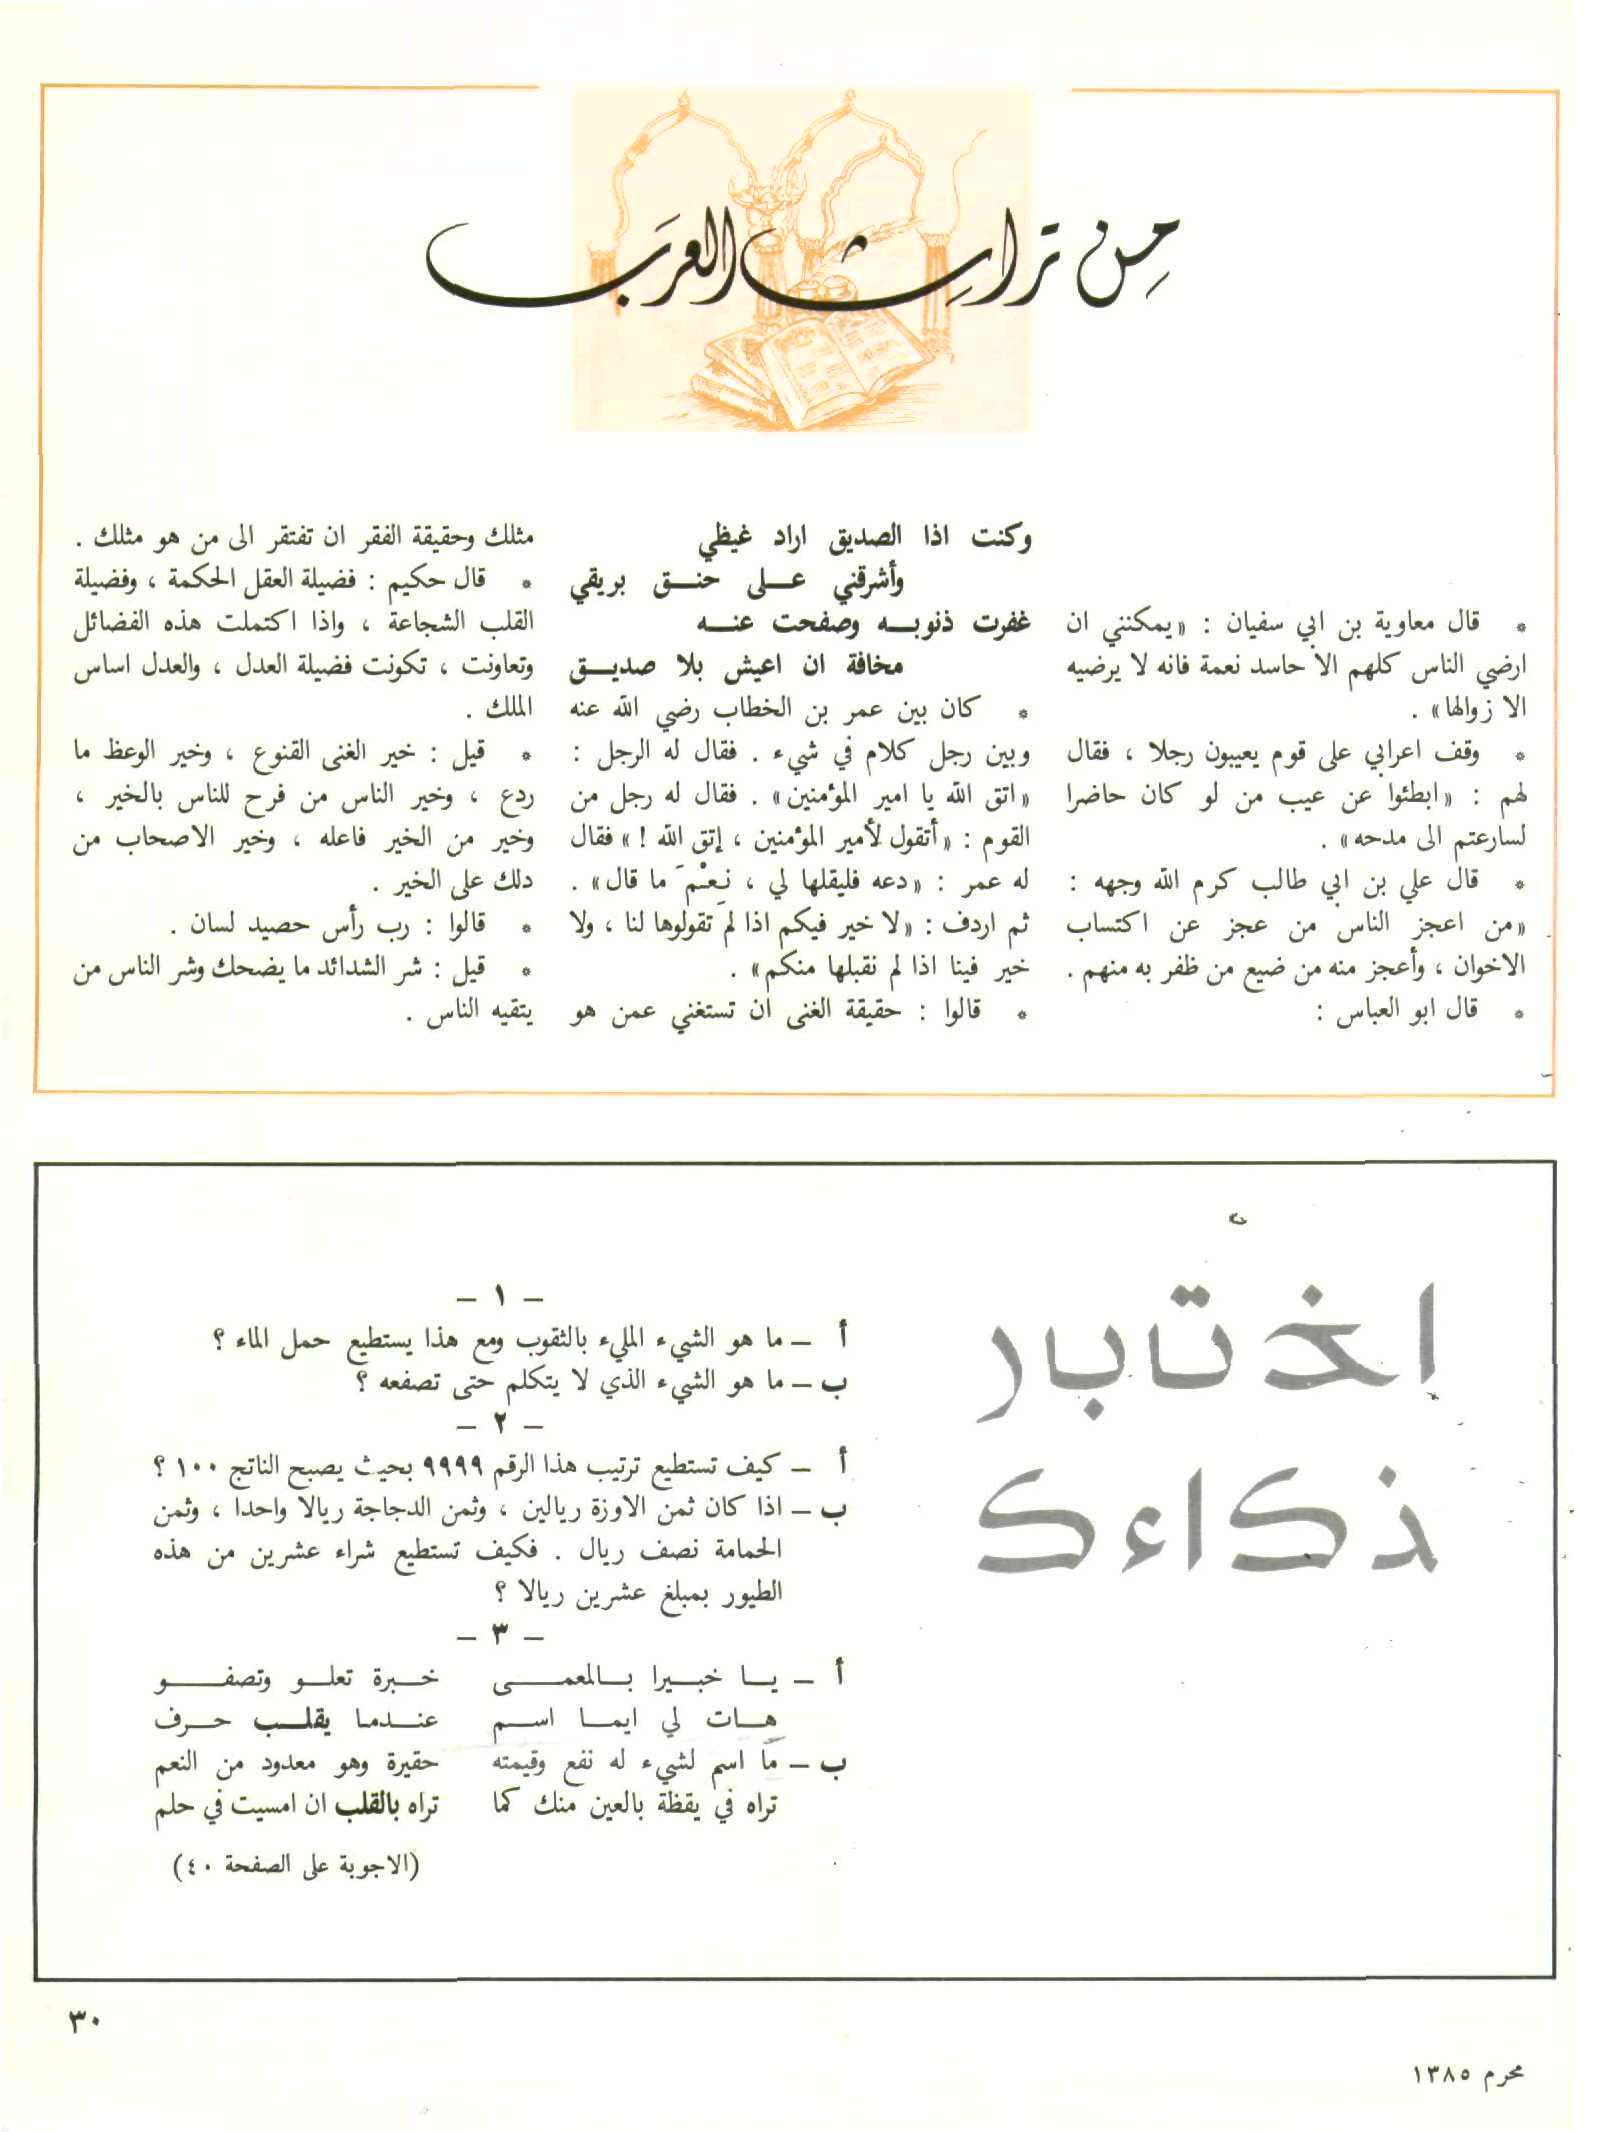 من تراث العرب
* قال معاوية بن ابي سفيان : «يمكنني ان
ارضي الناس كلهم الا حاسد نعمة فانه لا يرضيه
الا زوالها» .
* وقف اعرابي على قوم يعيبون رجلا ، فقال
لهم : «ابطئوا عن عيب من لو كان حاضرا
لسارعتم الى مدحه» .
* قال علي بن ابي طالب كرم الله وجهه :
«من اعجز الناس من عجز عن اكتساب
الاخوان ، وأعجز منه من ضيع من ظفر به منهم .
* قال ابو العباس :
وكنت اذا الصديق اراد غيظي
وأشرقني عـلى حنـق بريقي
غفرت ذنوبـه وصفحت عنـه
مخافة ان اعيش بلا صديـق
* كان بين عمر بن الخطاب رضي الله عنه
وبين رجل كلام في شيء . فقال له الرجل :
«اتق الله يا امير المؤمنين» . فقال له رجل من
القوم : «أتقول لأمير المؤمنين ، إتق الله !» فقال
له عمر : «دعه فليقلها لي ، نِعْمَ ما قال» .
ثم اردف : «لا خير فيكم اذا لم تقولوها لنا ، ولا
خير فينا اذا لم نقبلها منكم» .
* قالوا : حقيقة الغنى ان تستغني عمن هو
مثلك وحقيقة الفقر ان تفتقر الى من هو مثلك .
* قال حكيم : فضيلة العقل الحكمة ، وفضيلة
القلب الشجاعة ، واذا اكتملت هذه الفضائل
وتعاونت ، تكونت فضيلة العدل ، والعدل اساس
الملك .
* قيل : خير الغنى القنوع ، وخير الوعظ ما
ردع ، وخير الناس من فرح للناس بالخير ،
وخير من الخير فاعله ، وخير الاصحاب من
دلك على الخير .
* قالوا : رب رأس حصيد لسان .
* قيل : شر الشدائد ما يضحك وشر الناس من
يتقيه الناس .
اختبار
ذكاءك
– ١ –
أ – ما هو الشيء المليء بالثقوب ومع هذا يستطيع حمل الماء ؟
ب – ما هو الشيء الذي لا يتكلم حتى تصفعه ؟
– ٢ –
أ – كيف تستطيع ترتيب هذا الرقم ٩٩٩٩ بحيث يصبح الناتج ١٠٠ ؟
ب – اذا كان ثمن الاوزة ريالين ، وثمن الدجاجة ريالا واحدا ، وثمن
الحمامة نصف ريال . فكيف تستطيع شراء عشرين من هذه
الطيور بمبلغ عشرين ريالا ؟
– ٣ –
أ – يـا خبـيرا بـالمعمـى خـبرة تعلـو وتصفـو
هـات لي ايمـا اسـم عنـدمـا يقلـب حـرف
ب – ما اسم لشيء له نفع وقيمته حقيرة وهو معدود من النعم
تراه في يقظة بالعين منك كما تراه بالقلب ان امسيت في حلم
(الاجوبة على الصفحة ٤٠)
٣٠
محرم ١٣٨٥